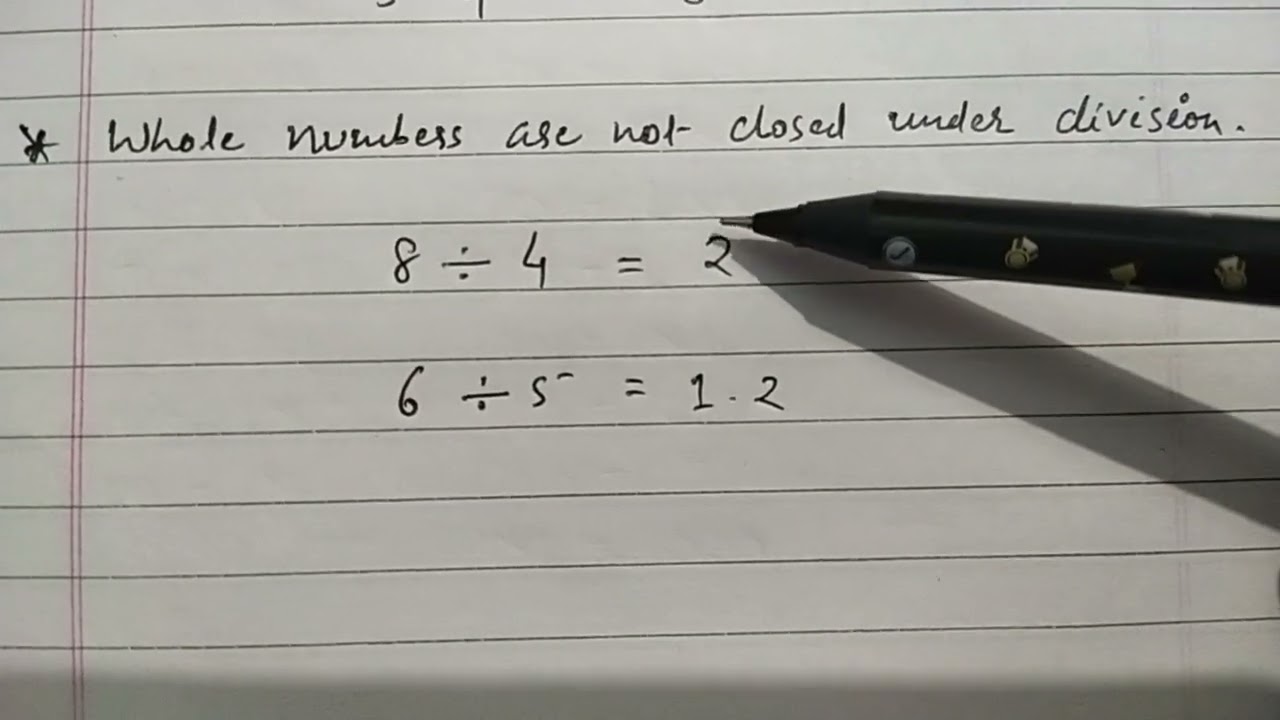 * Whole numbers are not closed under division.
8 ÷ 4 = 2
6 ÷ 5 = 1.2